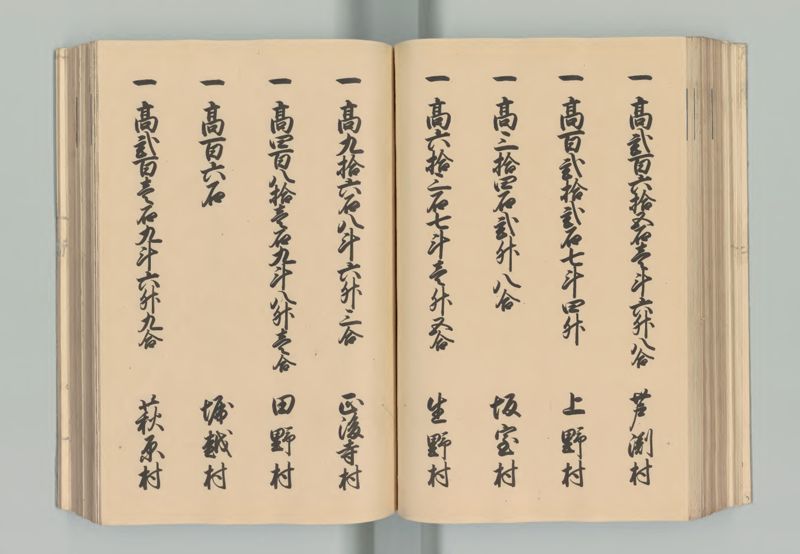 一 高弐百六拾五石壱斗六升八合 芦渕村
一 高百弐拾弐石七斗四升 上野村
一 高三拾四石弐升八合 坂室村
一 高六拾三石七斗壱升五合 生野村
一 高九拾六石八斗六升三合 正後寺村
一 高四百八拾壱石九斗八升壱合 田野村
一 高百六石 堀越村
一 高弐百壱石九斗六升九合 萩原村